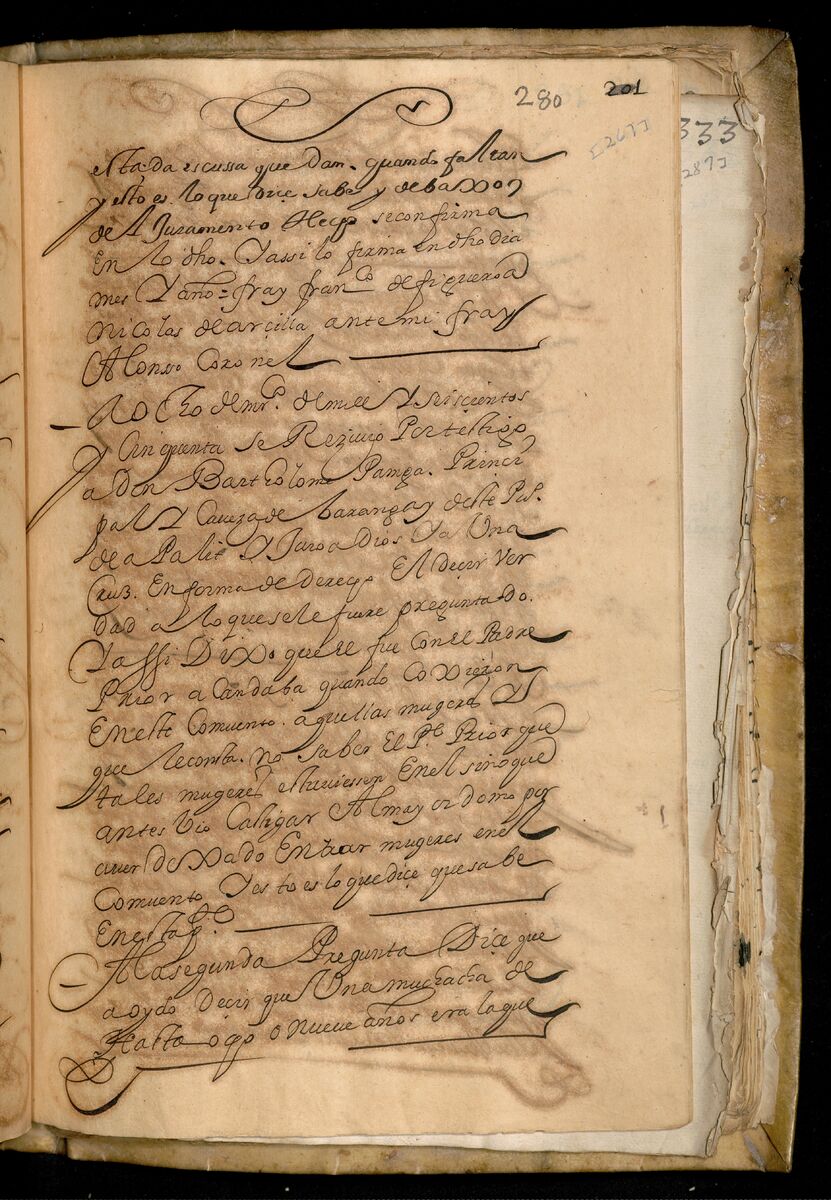 280 201
[267]
333
287]
esta da escussa que dan. quando faltan
y esto es lo que diçe saber y debaxo
del Juramento Hecho se confirma
En lo dho. Y assi lo firma en dho dia
mes Y año = fray franco de figueroa
Nicolas de arcilla ante mi fray
Alonsso Coronel
Ocho de mrço. de mill Y seiscientos
y cinquenta se Reziuio Por testigo
a Don Bartholome Panga. Princi
pal Y Caueza de barangay deste Pueo.
de a Palit Y Juro a Dios Ya Una
Cruz. En forma de derecho El decir Ver
dad a lo que se le fuere preguntado.
Y assi Dixo que el fue Con El Padre
Prior a Candaba quando Coxieron
En este Comuento. aquellas mugeres Y
que le consta. no saber El Pe. Prior que
tales mugeres estuuiessen En el sino que
antes bio Castigar Al mayordomo por
auer dexado Entrar mugeres en el
Comuento Y esto es lo que diçe que sabe
En esta pta.
A la segunda Pregunta Diçe que
a oydo deçir que Una muchacha de
Hasta ocho o nueue años era la que